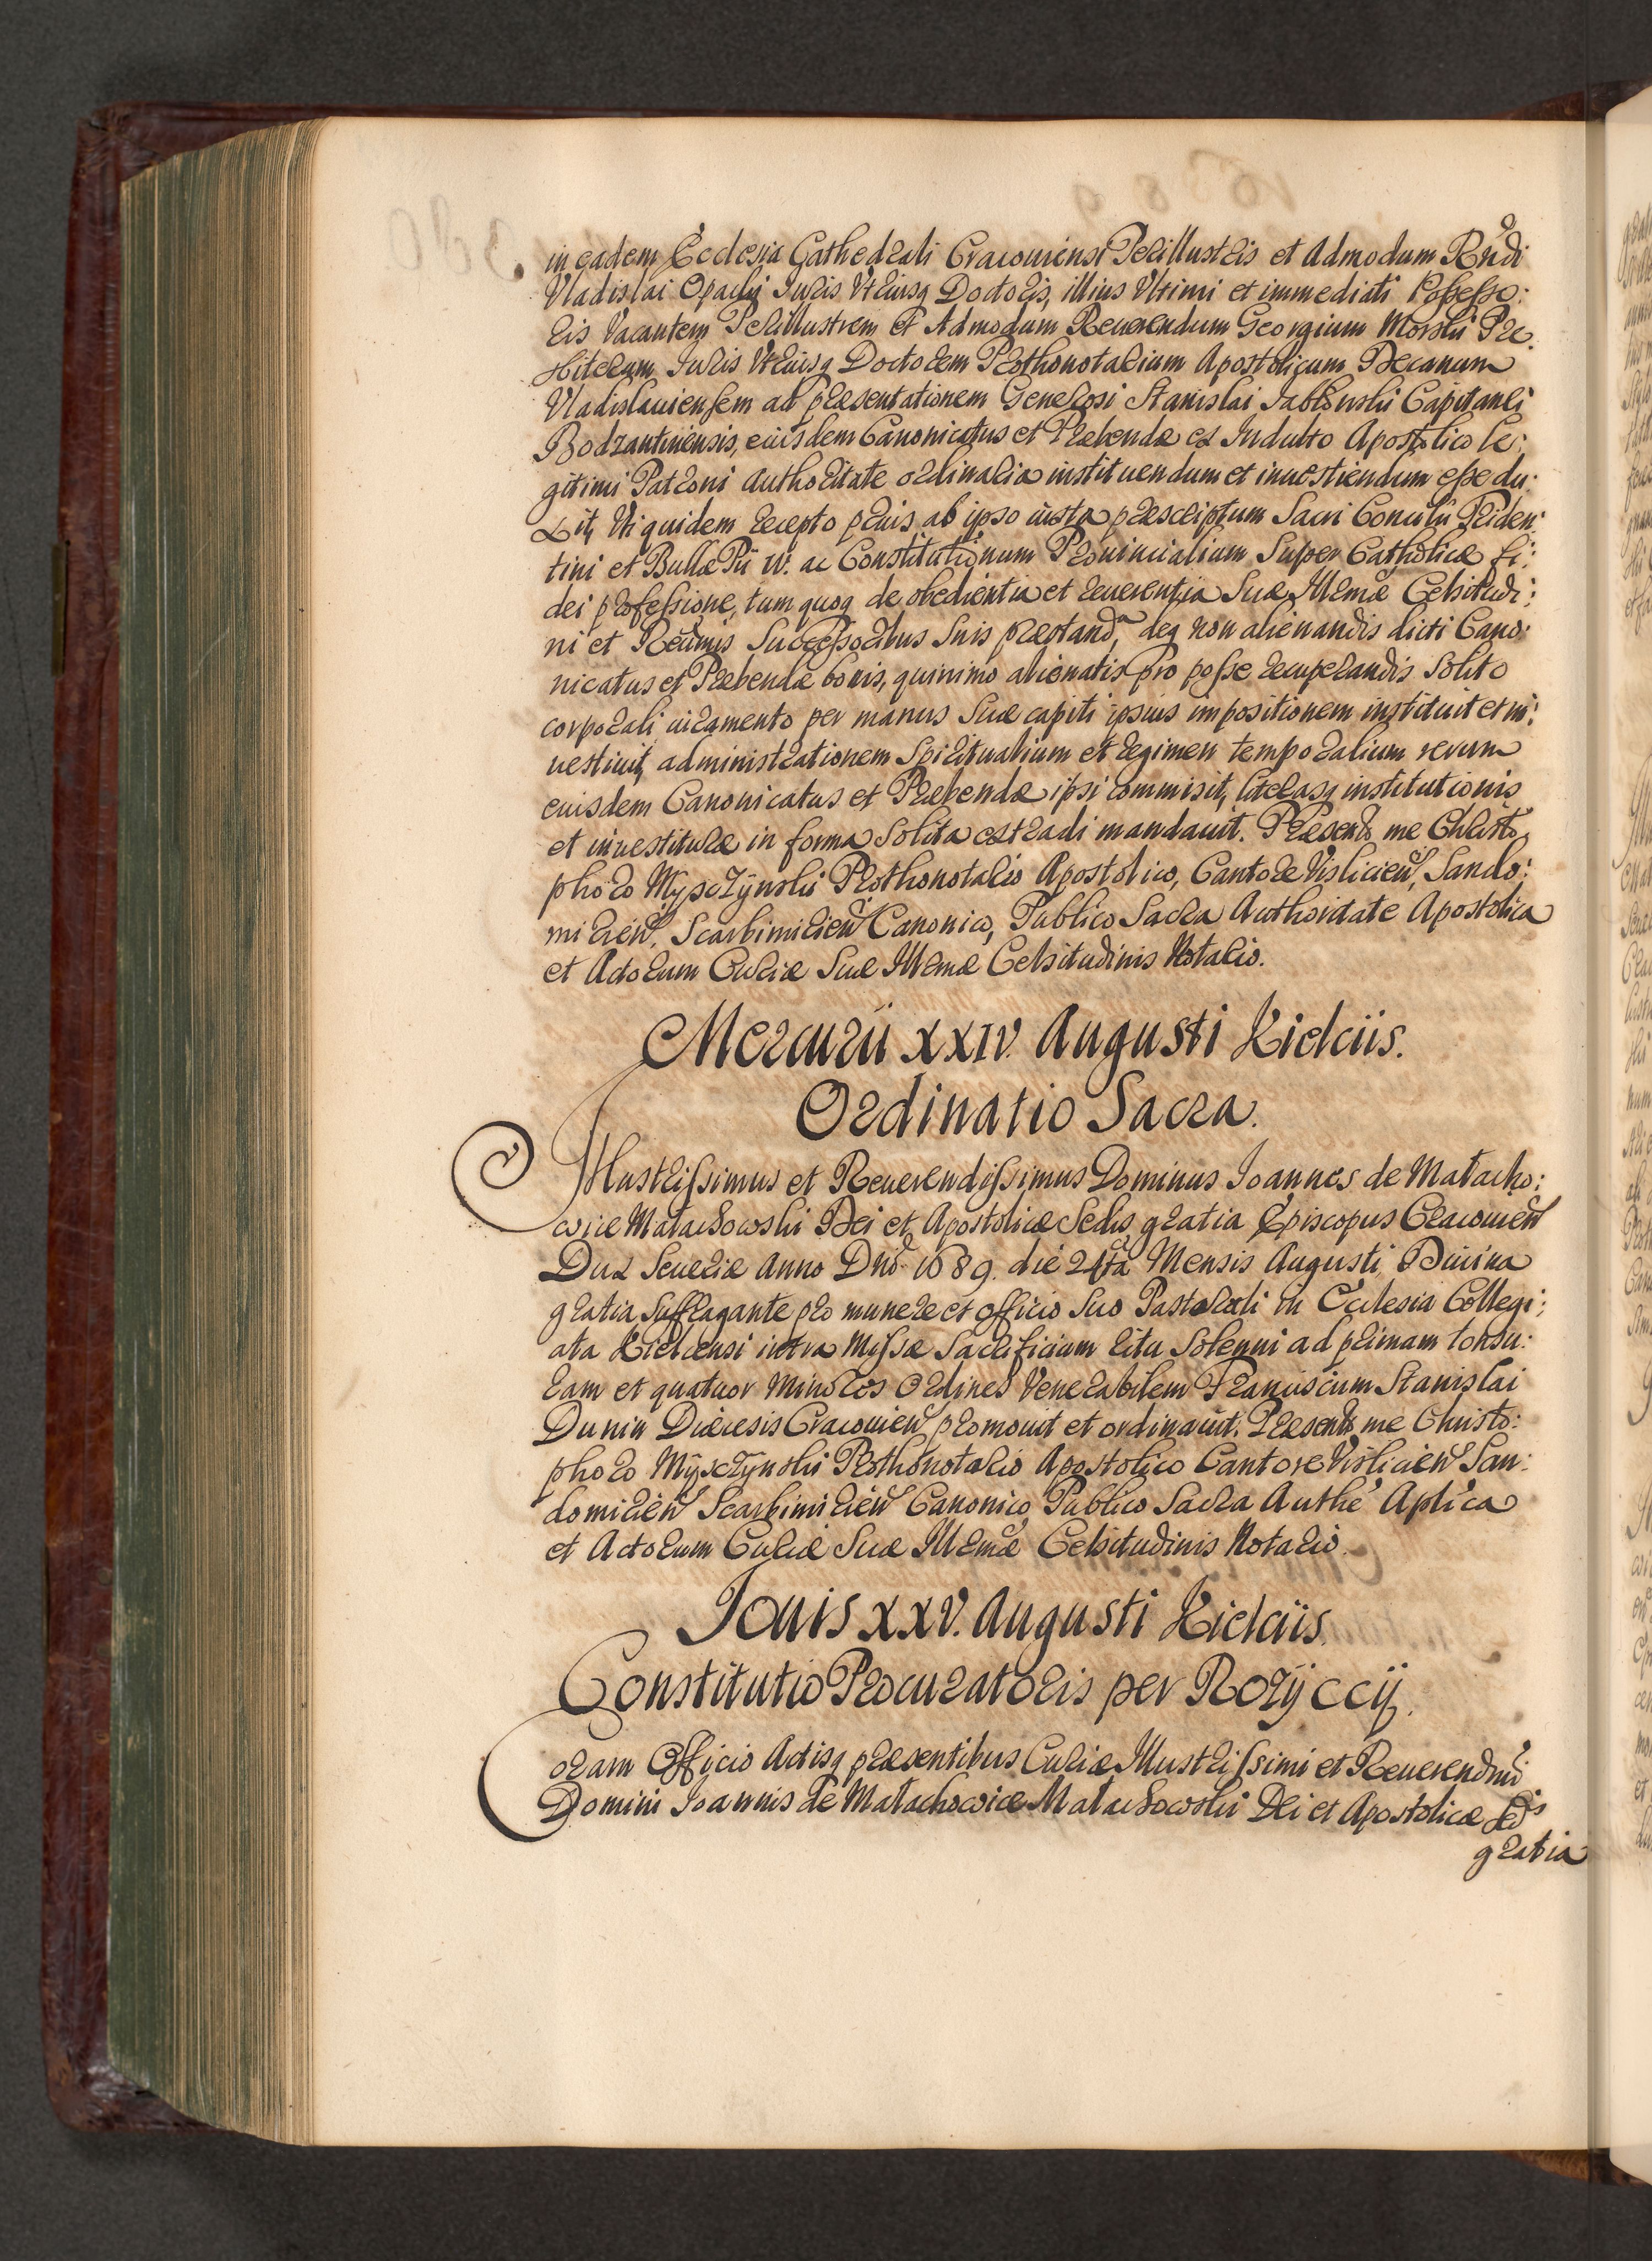 in eadem Ecclesia Cathedrali Cracouiensi Perillustris et Admodum Rndi
Vladislai Opacki Juris Vtriusq Doctoris, illius Vltimi et immediati Possesso:
ris Vacantem Perillustrem et Admodum Reuerendum Georgium Morski Pre:
sbiterum Juris Vtriusq Doctorem Prothonotarium Apostolicum Decanum
Vladislauiensem ad præsentationem Generosi Stanislai Jabłonski Capitanei
Bodzantinensis, eiusdem Canonicatus et Præbendæ ex Indulto Apostolico le:
gitimi Patroni Authoritate ordinaria instituendum et inuestiendum esse du:
xit, Vti quidem recepto prius ab ipso iuxta præscriptum Sacri Concilii Triden:
tini et Bullæ Pii IV. ac Constitutionum Prouincialium Super Catholicæ fi:
dei professione, tum quoq de obedientia et reuerentia Suæ Illrmæ Celsitudi:
ni et Reumis Successoribus Suis præstand, deq non alienandis dicti Cano:
nicatus et Præbendæ bonis, quinimo alienatis pro posse recuperandis Solito
corporali iuramento per manus Suæ capiti ipsius impositionem instituit et in:
uestiuit, administrationem Spiritualium et regimen temporalium rerum
eiusdem Canonicatus et Præbendæ ipsi commisit, literasq institutionis
et inuestituræ in forma Solita extradi mandauit. Præsente me Christo,
phoro Myszczÿnski Prothonotario Apostolico, Cantore Vislicien, Sando:
mirien, Scarbimirien Canonico, Publico Sacra Authoritate Apostolica
et Actorum Curiæ Suæ Illrmæ Celsitudinis Notario.
Mercurii XXIV. Augusti Kielciis.
Ordinatio Sacra.
Illustrissimus et Reuerendissimus Dominus Joannes de Małacho:
wice Małachowski Dei et Apostolicæ Sedis gratia Episcopus Cracouien
Dux Seueriæ Anno Dni 1689. die 24ta Mensis Augusti, Diuina
gratia Suffragante pro munere et officio Suo Pastorali in Ecclesia Collegi:
ata Kielcensi intra Missæ Sacrificium ritu Solenni ad primam tonsu:
ram et quatuor Minores Ordines Venerabilem Franciscum Stanislai
Dunin Diæcesis Cracouien promouit et ordinauit. Præsente me Christo:
phoro Mÿszczÿnski Prothonotario Apostolico Cantore Vislicien San:
domirien Scarbimirien Canonico, Publico Sacra Authe Aplica
et Actorum Curiæ Suæ Illrmæ Celsitudinis Notario.
Jouis XXV. Augusti Kielciis.
Constitutio Procuratoris per Rozÿccij.
Coram Officio Actisq præsentibus Curiæ Illustrissimi et Reuerendmi
Domini Joannis de Małachowice Małachowski Dei et Apostolicæ Sedis
gratia